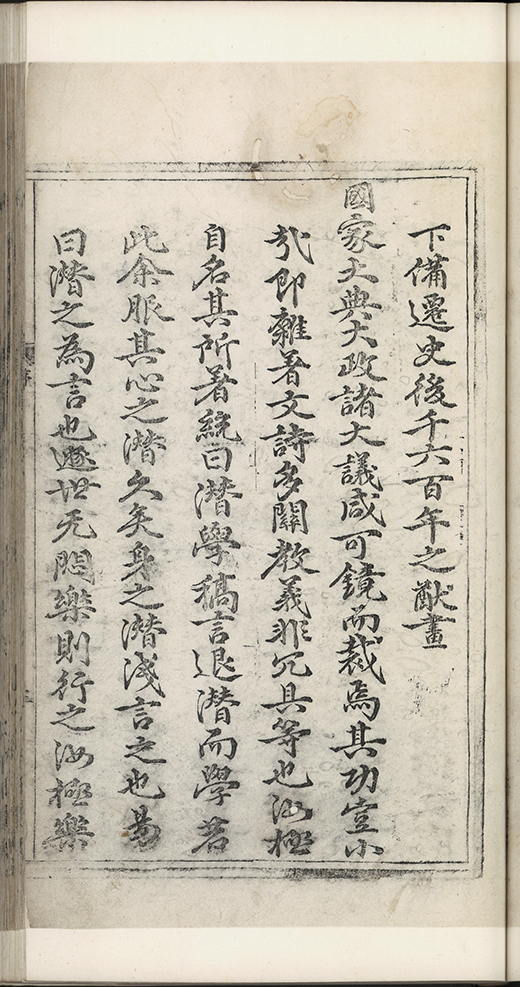 下備遷史後千六百年之猷畫
國家大典大政諸大議咸可鏡而裁焉其功豈小
哉即雜著文詩多關教義非冗具等也汝極
自名其所著統曰潛學稿言退潛而學若
此余服其心之潛久矣身之潛淺言之也易
曰潛之為言也遯世无悶樂則行之汝極樂